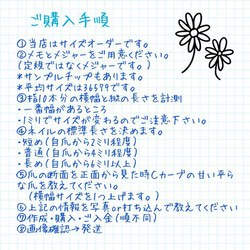 ご購入手順
①当店はサイズオーダーです。
②メモとメジャーをご用意ください。
(定規ではなくメジャーです。)
*サンプルチップもあります。
*平均サイズは36579です。
③指10本分の横幅と縦の長さを計測
・一番幅があるところ
・1ミリでサイズが変わるのでご注意下さい。
④ネイルの標準長さを決めます。
・短め(自爪から2ミリ程度)
・普通(自爪から4ミリ程度)
・長め(自爪から6ミリ以上)
⑤爪の断面を正面から見た時カーブの甘い平ら
な爪を教えてください。
(横幅サイズを1つ上げます。)
⑥上記の情報を写真or打ち込んで教えてください
⑦作成・購入・ご入金(順不同)
⑧画像確認→発送